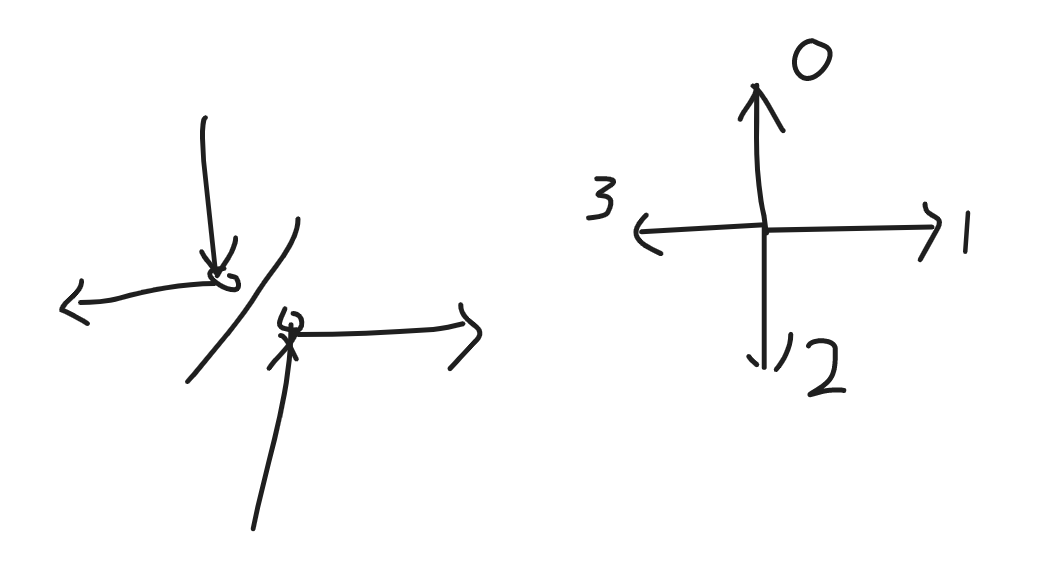 0
3
1
2